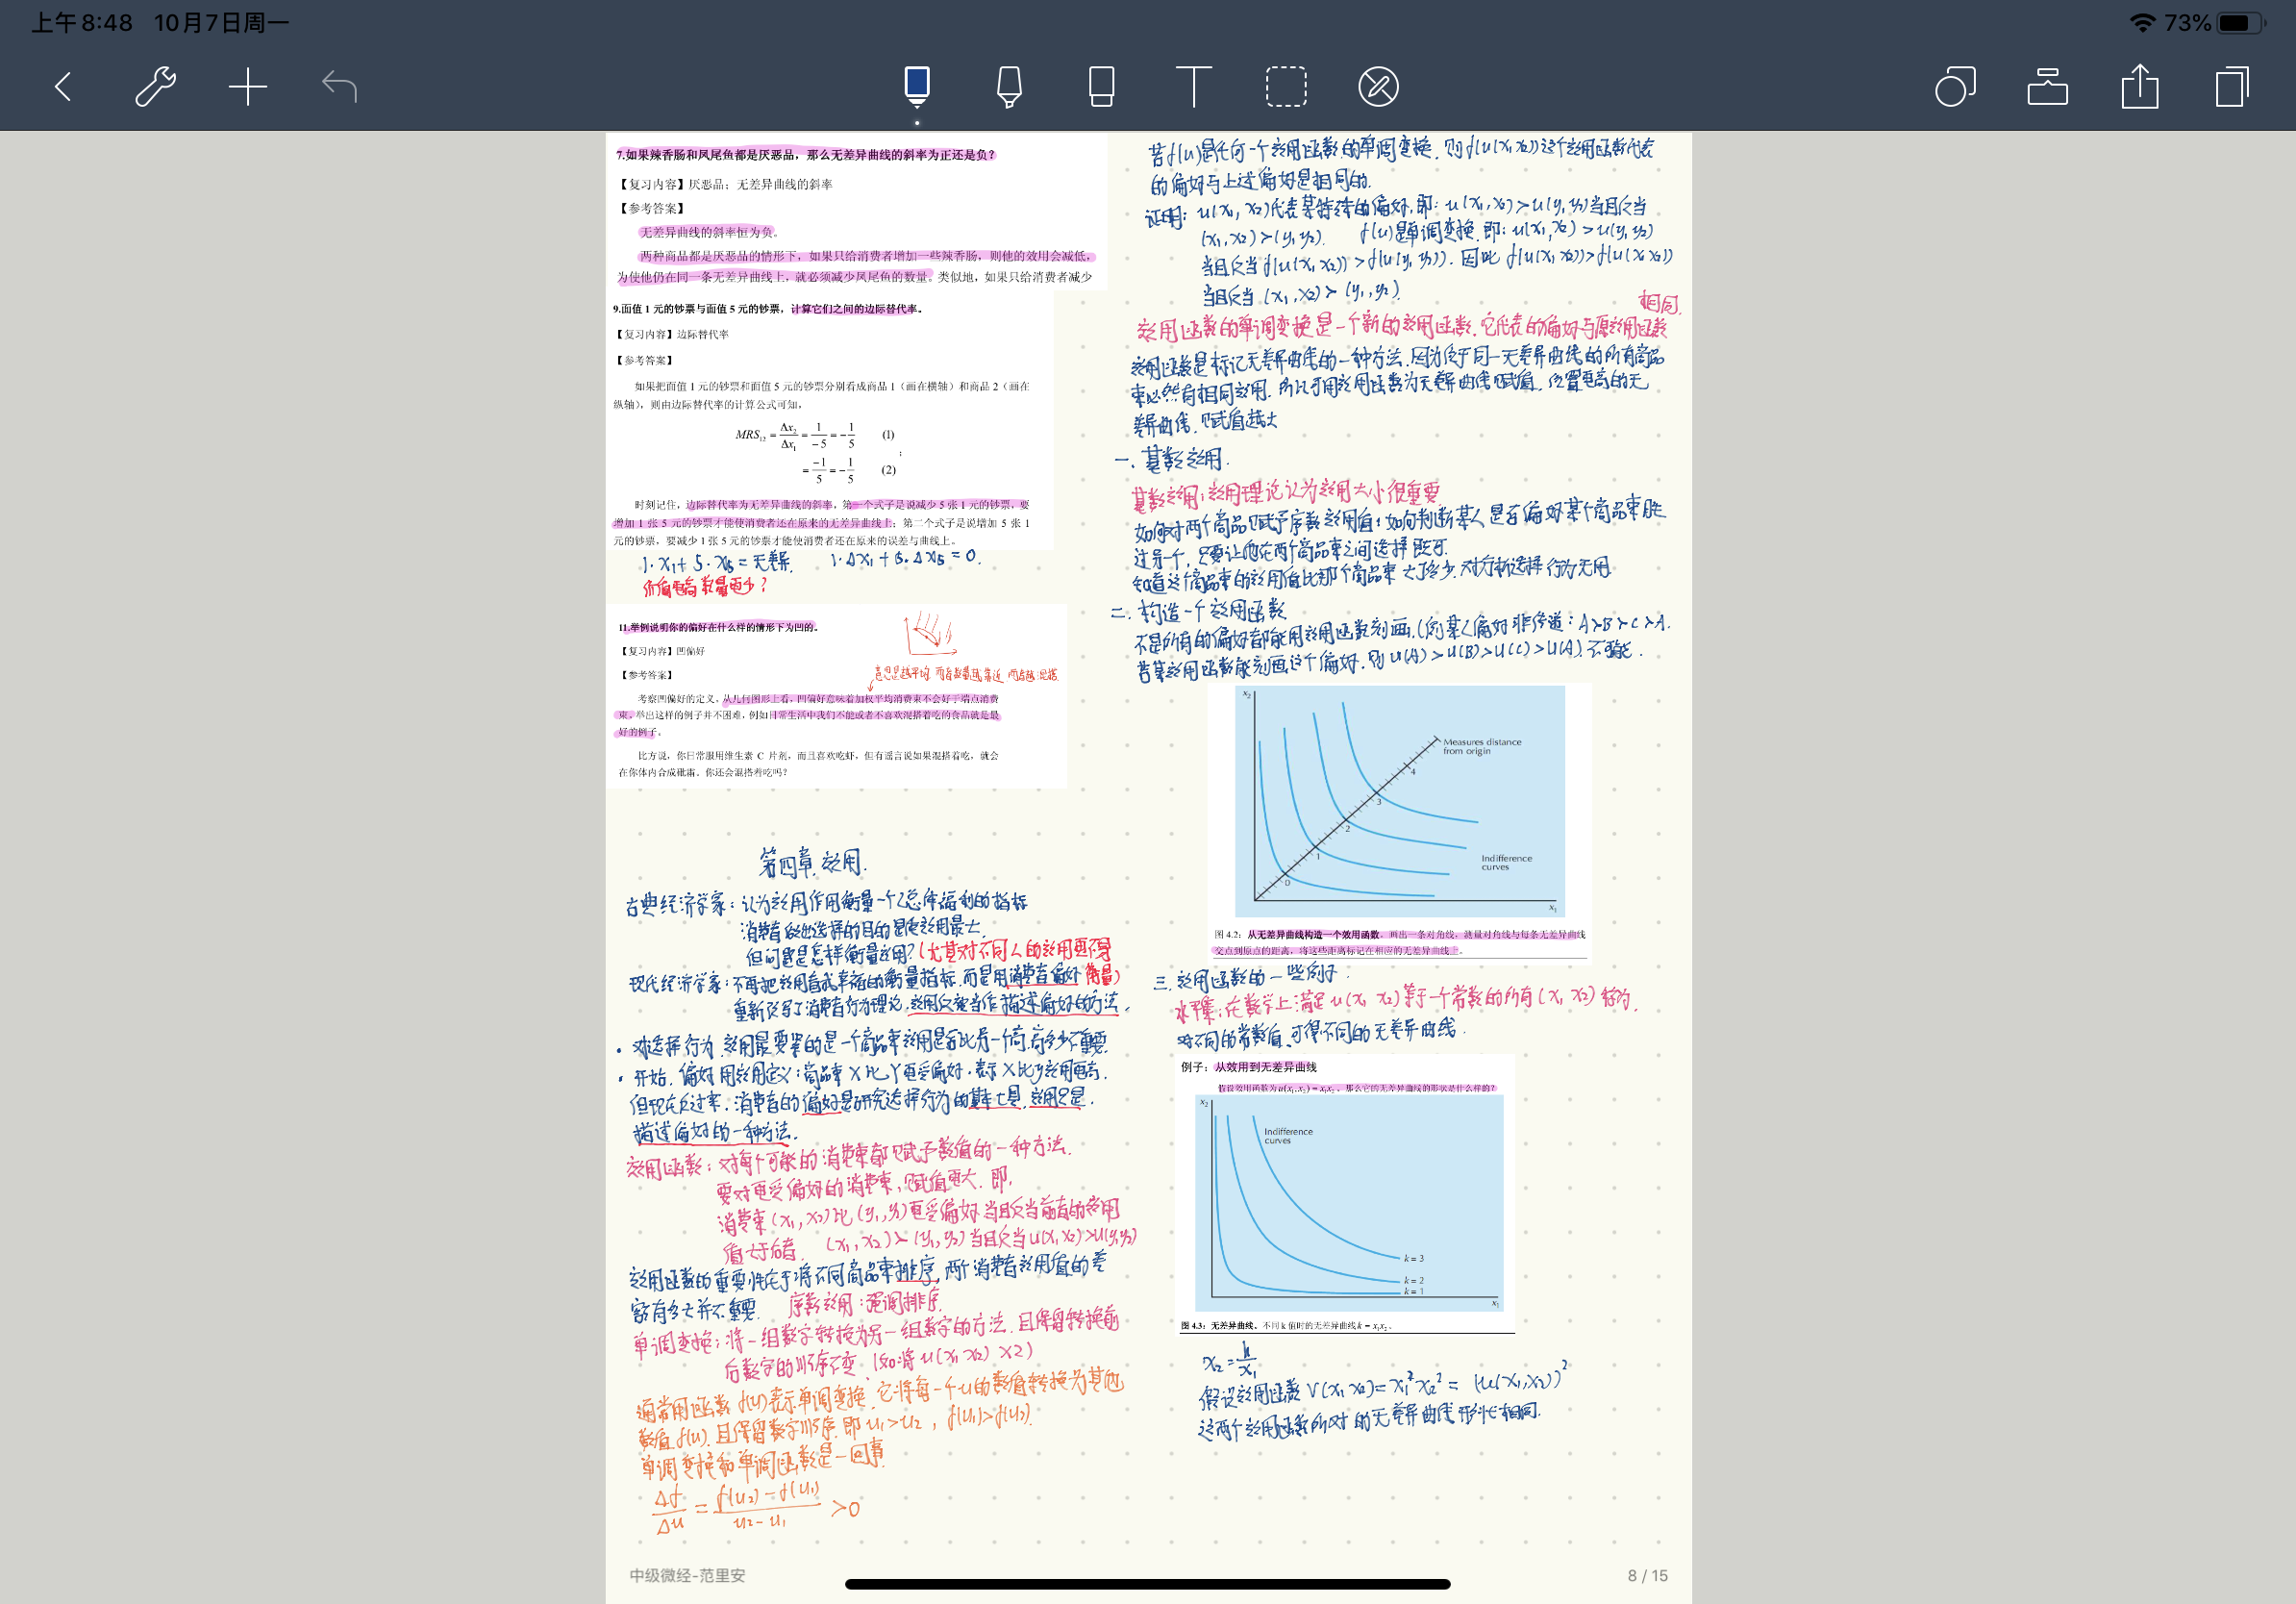 上午8:48 10月7日周一
73%
7.如果辣香肠和凤尾鱼都是厌恶品，那么无差异曲线的斜率为正还是负？
【复习内容】厌恶品；无差异曲线的斜率
【参考答案】
无差异曲线的斜率恒为负。
两种商品都是厌恶品的情形下，如果只给消费者增加一些辣香肠，则他的效用会减低，
为使他仍在同一条无差异曲线上，就必须减少凤尾鱼的数量。类似地，如果只给消费者减少
9.面值 1 元的钞票与面值 5 元的钞票，计算它们之间的边际替代率。
【复习内容】边际替代率
【参考答案】
如果把面值 1 元的钞票和面值 5 元的钞票分别看成商品 1（画在横轴）和商品 2（画在
纵轴），则由边际替代率的计算公式可知，
MRS₁₂ = Δx₂/Δx₁ = 1/-5 = -1/5 (1)
= -1/5 = -1/5 (2) ；
时刻记住，边际替代率为无差异曲线的斜率，第一个式子是说减少 5 张 1 元的钞票，要
增加 1 张 5 元的钞票才能使消费者还在原来的无差异曲线上；第二个式子是说增加 5 张 1
元的钞票，要减少 1 张 5 元的钞票才能使消费者还在原来的误差与曲线上。
1·x₁+5·x₅=无差异. 1·Δx₁+5·Δx₅=0.
价值更高 数量更少？
11.举例说明你的偏好在什么样的情形下为凹的。
【复习内容】凹偏好
【参考答案】
意思是越平均，两者数量越靠近，
考察凹偏好的定义，从几何图形上看，凹偏好意味着加权平均消费束不会好于端点消费
束。举出这样的例子并不困难，例如日常生活中我们不能或者不喜欢混搭着吃的食品就是最
好的例子。
比方说，你日常服用维生素 C 片剂，而且喜欢吃虾，但有谣言说如果混搭着吃，就会
在你体内合成砒霜。你还会混搭着吃吗？
第四章.效用.
古典经济学家：认为效用作用衡量一个人总体福利的指标
消费者做出选择的目的是使效用最大.
但问题是怎样衡量效用？(尤其对不同人的效用更不易
衡量)
现代经济学家：不再把效用看成幸福的衡量指标.而是用消费者偏好
重新改写了消费者行为理论.效用仅被当作描述偏好的方法.
• 对选择行为.效用最要紧的是一个商品束效用是否比另一个高.高多少不重要.
• 开始.偏好用效用定义：商品束X比Y更受偏好.表示X比Y效用更高.
但现在反过来.消费者的偏好是研究选择行为的基本工具.效用只是.
描述偏好的一种方法.
效用函数：对每个可能的消费束都赋予数值的一种方法.
要对更受偏好的消费束，赋值更大.即，
消费束(x₁,x₂)比(y₁,y₂)更受偏好当且仅当前者的效用
值大于后者. (x₁,x₂)≻(y₁,y₂)当且仅当u(x₁,x₂)>u(y₁,y₂)
效用函数的重要性在于将不同商品束排序.两个消费者效用值的差
额有多大并不重要. 序数效用：强调排序.
单调变换：将一组数字转换为另一组数字的方法.且保留转换前
后数字的顺序不变.(如将u(x₁,x₂)×2)
通常用函数f(u)表示单调变换.它将每一个u的数值转换为其他
数值f(u).且保留数字顺序.即u₁>u₂，f(u₁)>f(u₂).
单调变换和单调函数是一回事.
Δf/Δu = f(u₂)-f(u₁)/u₂-u₁ >0
若f(u)是任何一个效用函数的单调变换.则f(u(x₁,x₂))这个效用函数代表
的偏好与上述偏好是相同的.
证明：u(x₁,x₂)代表某特殊的偏好.即：u(x₁,x₂)>u(y₁,y₂)当且仅当
(x₁,x₂)≻(y₁,y₂). f(u)是单调变换.即：u(x₁,x₂)>u(y₁,y₂)
当且仅当f(u(x₁,x₂))>f(u(y₁,y₂)).因此f(u(x₁,x₂))>f(u(x₁,x₂))
当且仅当(x₁,x₂)≻(y₁,y₂).
相同.
效用函数的单调变换是一个新的效用函数.它代表的偏好与原效用函数
效用函数是标记无差异曲线的一种方法.因为位于同一无差异曲线的所有商品
束必然有相同效用.所以可用效用函数为无差异曲线赋值.位置更高的无
差异曲线.赋值越大
一.基数效用.
基数效用：效用理论认为效用大小很重要
如何对两个商品赋予序数效用值：如何判断某人是否偏好某个商品束胜
过另一个，只要让他在两个商品束之间选择即可.
知道这个商品束的效用值比那个商品束大多少.对分析选择行为无用
二.构造一个效用函数
不是所有的偏好都能用效用函数刻画.(例某人偏好非传递：A≻B≻C≻A.
若某效用函数能刻画这个偏好.则u(A)>u(B)>u(C)>u(A).不可能.
x₂
Measures distance
from origin
4
3
2
1
0
Indifference
curves
x₁
图 4.2：从无差异曲线构造一个效用函数。画出一条对角线，测量对角线与每条无差异曲线
交点到原点的距离，将这些距离标记在相应的无差异曲线上。
三.效用函数的一些例子.
水平集：在数学上满足u(x₁,x₂)等于一个常数的所有(x₁,x₂)称为.
对不同的常数值.可得不同的无差异曲线.
例子：从效用到无差异曲线
假设效用函数为u(x₁,x₂)=x₁x₂。那么它的无差异曲线的形状是什么样的？
x₂
Indifference
curves
k = 3
k = 2
k = 1
x₁
图 4.3：无差异曲线。不同 k 值时的无差异曲线 k = x₁x₂。
x₂=k/x₁
假设效用函数V(x₁,x₂)=x₁²x₂²=(u(x₁,x₂))²
这两个效用函数所对的无差异曲线形状相同.
中级微经-范里安
8 / 15